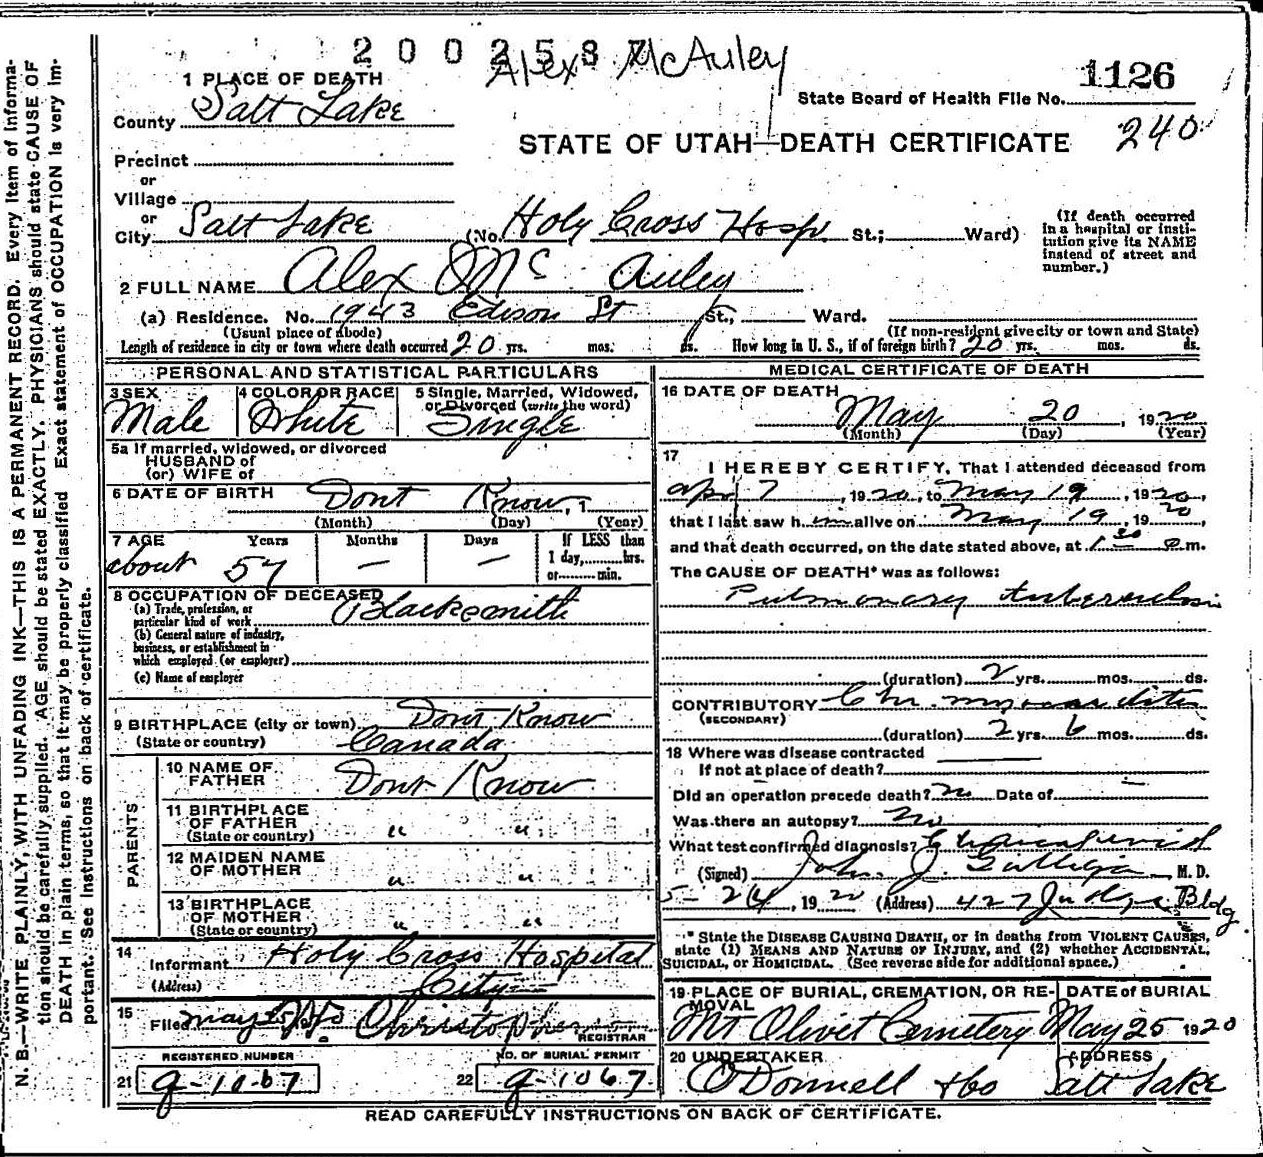 2002587
Alex McAuley
1126
State Board of Health File No.
240
STATE OF UTAH—DEATH CERTIFICATE
1 PLACE OF DEATH
County Salt Lake
Precinct
or
Village
or
City Salt Lake (No. Holy Cross Hosp. St.; Ward)
(If death occurred in a hospital or institution give its NAME instead of street and number.)
2 FULL NAME Alex Mc Auley
(a) Residence. No. 1943 Edison St St., Ward.
(Usual place of abode) (If non-resident give city or town and State)
Length of residence in city or town where death occurred 20 yrs. mos. ds. How long in U. S., if of foreign birth? 20 yrs. mos. ds.
PERSONAL AND STATISTICAL PARTICULARS
3 SEX Male
4 COLOR OR RACE White
5 Single, Married, Widowed, or Divorced (write the word) Single
5a If married, widowed, or divorced
HUSBAND of
(or) WIFE of
6 DATE OF BIRTH Dont Know, 1
(Month) (Day) (Year)
7 AGE Years Months Days If LESS than
about 57 — — 1 day, hrs.
or min.
8 OCCUPATION OF DECEASED
(a) Trade, profession, or
particular kind of work Blacksmith
(b) General nature of industry,
business, or establishment in
which employed (or employer)
(c) Name of employer
9 BIRTHPLACE (city or town) Dont Know
(State or country) Canada
PARENTS
10 NAME OF FATHER Dont Know
11 BIRTHPLACE OF FATHER (State or country) " "
12 MAIDEN NAME OF MOTHER " "
13 BIRTHPLACE OF MOTHER (State or country) " "
14 Informant Holy Cross Hospital
(Address) City
15 Filed May 25 Christopherson
REGISTRAR
REGISTERED NUMBER
21 g-1067
NO. OF BURIAL PERMIT
22 g-1067
MEDICAL CERTIFICATE OF DEATH
16 DATE OF DEATH
May 20, 1920
(Month) (Day) (Year)
17
I HEREBY CERTIFY, That I attended deceased from
Apr 7, 1920, to May 19, 1920,
that I last saw him alive on May 19, 1920,
and that death occurred, on the date stated above, at 1 30 m.
The CAUSE OF DEATH* was as follows:
Pulmonary tuberculosis
(duration) 2 yrs. mos. ds.
CONTRIBUTORY Chr. myocarditis
(SECONDARY)
(duration) 2 yrs. 6 mos. ds.
18 Where was disease contracted
If not at place of death?
Did an operation precede death? no Date of —
Was there an autopsy? no
What test confirmed diagnosis?
(Signed) John J. M. D.
5-24, 1920 (Address) 427 Judge Bldg
* State the DISEASE CAUSING DEATH, or in deaths from VIOLENT CAUSES,
state (1) MEANS AND NATURE OF INJURY, and (2) whether ACCIDENTAL,
SUICIDAL, or HOMICIDAL. (See reverse side for additional space.)
19 PLACE OF BURIAL, CREMATION, OR REMOVAL
Mt Olivet Cemetery
DATE of BURIAL
May 25 1920
20 UNDERTAKER
O'Donnell & Co
ADDRESS
Salt Lake
READ CAREFULLY INSTRUCTIONS ON BACK OF CERTIFICATE.
N. B.—WRITE PLAINLY, WITH UNFADING INK—THIS IS A PERMANENT RECORD. Every item of information should be carefully supplied. AGE should be stated EXACTLY. PHYSICIANS should state CAUSE OF DEATH in plain terms, so that it may be properly classified. Exact statement of OCCUPATION is very important. See instructions on back of certificate.